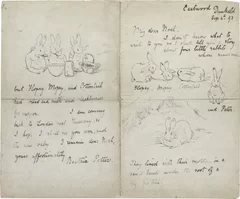 Eastwood
Dunkeld
Sep 4th 93
My dear Noel,
I don't know what to
write to you, so I shall tell you a story
about four little rabbits
whose names were
Flopsy, Mopsy, Cottontail
and Peter
They lived with their mother in a
sand bank under the root of a
big fir tree.
but Flopsy, Mopsy, and Cottontail
had bread and milk and blackberries
for supper. I am coming
back to London next Thursday, so
I hope I shall see you soon, and
the new baby. I remain, dear Noel,
yours affectionately
Beatrix Potter